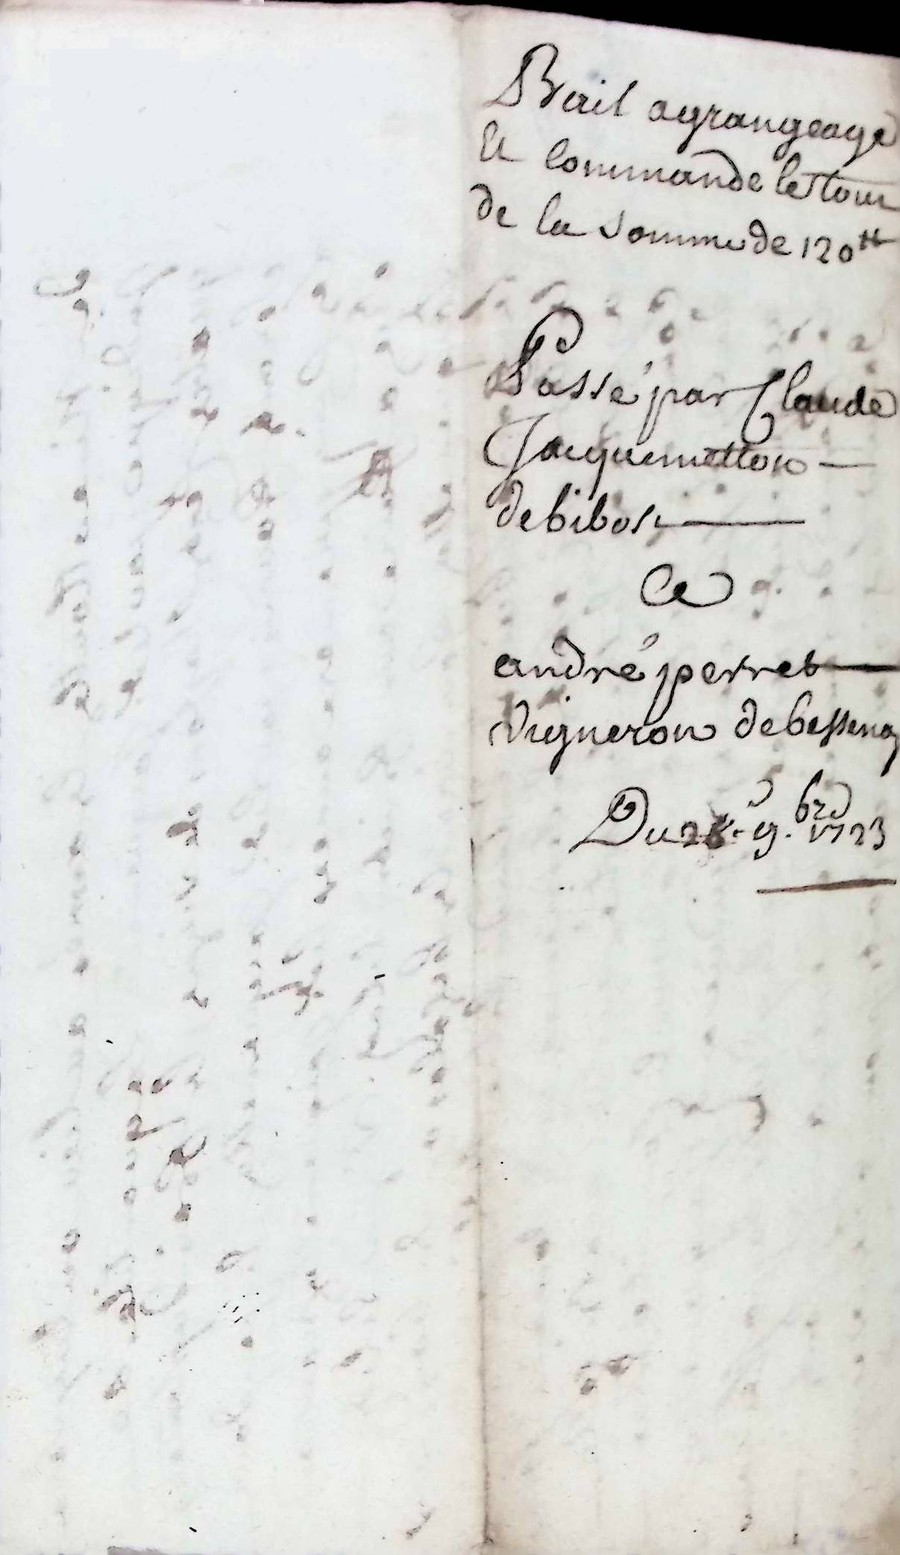 Bail agrangeage
Et Commande le tout
de la somme de 120tt
Passé par Claude
Jacquemetton
de bibost
A
andré perret
Vigneron de bessenay
Du 9.bre 1723